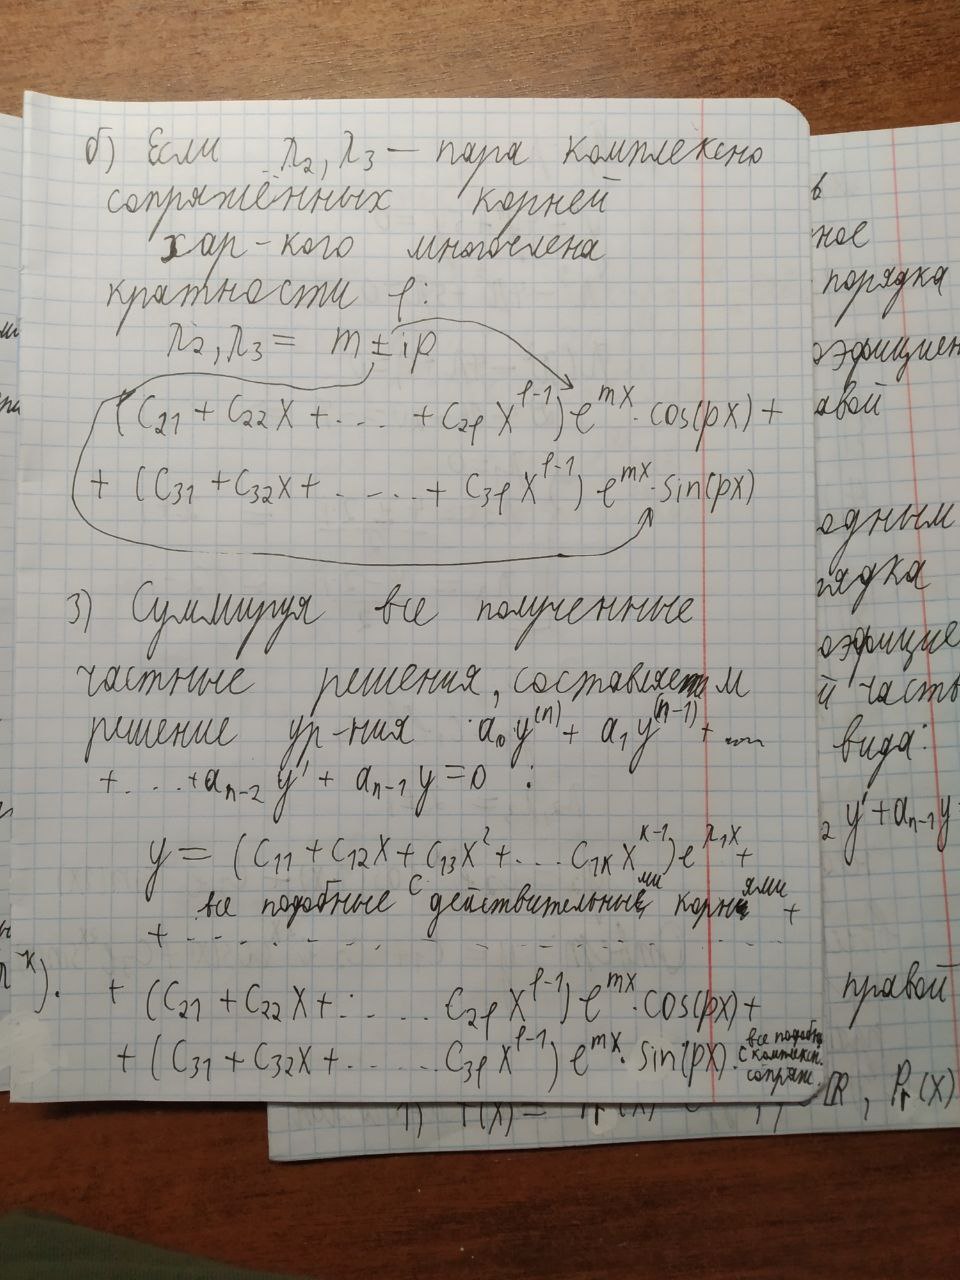 б) Если λ₂, λ₃ — пара комплексно
сопряжённых корней
хар-кого многочлена
кратности l:
λ₂, λ₃ = m ± ip
(C₂₁ + C₂₂X + . ... + C₂ₗ Xˡ⁻¹) eᵐˣ · cos(px) +
+ (C₃₁ + C₃₂X + . ... . + C₃ₗ Xˡ⁻¹) eᵐˣ · sin(px)
3) Суммируя все полученные
частные решения, составляем
решение ур-ния a₀y⁽ⁿ⁾ + a₁y⁽ⁿ⁻¹⁾ + ...
+ ... + aₙ₋₂ y' + aₙ₋₁ y = 0 :
y = (C₁₁ + C₁₂X + C₁₃X² + ... C₁ₖ Xᵏ⁻¹) e^λ₁x +
все подобные с действительными корнями +
+ - - - - - - - - - - - -
+ (C₂₁ + C₂₂X + : . ... C₂ₗ Xˡ⁻¹) eᵐˣ · cos(px) +
+ (C₃₁ + C₃₂X + . ... . C₃ₗ Xˡ⁻¹) eᵐˣ · sin(px) .
все подобн.
с комплексн.
сопряж.
в
ное
порядка
оэфициен
авой
одным
рядка
оэфицие
й часть
вида:
₂ y' + aₙ₋₁ y +
правой
ℝ, Pᵣ(X)
k).